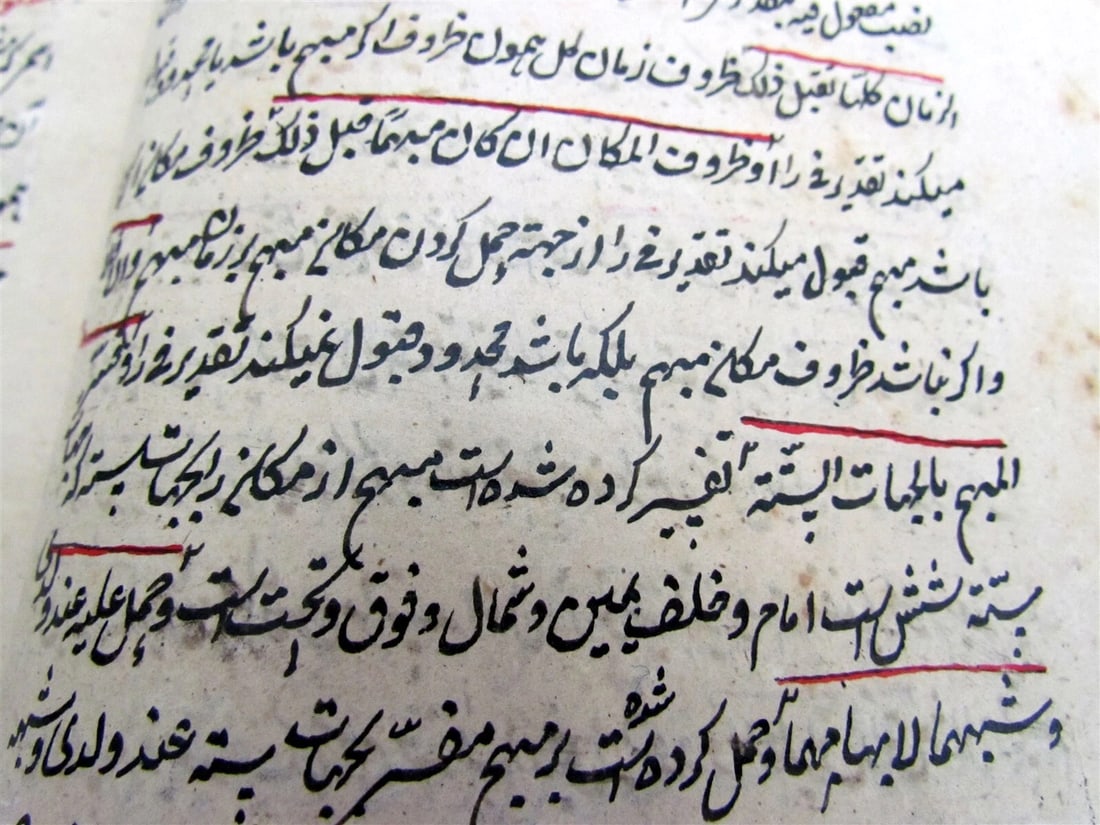 نصب مفعول فیه
الزمان کلها تقبل ذلک ظروف زمان کل همون ظروف اکر مبهم باشد یا محدود
میکند تقدیر فی را و ظروف المکان ان کان مبهما قبل ذلک ظروف مکان
باشد مبهم قبول میکند تقدیر فی را از جهته حمل کردن مکان مبهم بر زمان مبهم والا
واکر نباشد ظروف مکان مبهم بلکه باشد محدود قبول نمیکند تقدیر فی را و فسر
المبهم بالجهات الستة تفسیر کرده شده است مبهم از مکان را بجهات سته که
سته شش است امام و خلف یمین و شمال و فوق و تحت است و حمل علیه عند
و شبههما لابهامهما و حمل کرده شده است بر مبهم مفسر بجهات سته عند ولدی و شبه